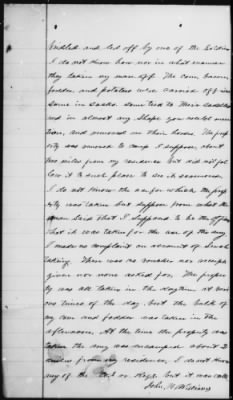 bridled and led off by one of the Soldiers
I do not know how nor in what manner
they taken my man off. The corn, bacon,
fodder, and potatoes were carried off in
some in sacks some tied to their saddles
and in almost any shape you could men
tion, and moved on their horses. The prop
erty was moved to camp I suppose about
two miles from my residence but did not fol
low it to such place to see it removed.
I do not know the use for which the prop
erty was taken but suppose from what the
men said that I suppose to be the officers
That it was taken for the use of the army
I made no complaint on account of such
taking. There was no voucher nor receipt
given nor none asked for. The proper
ty was all taken in the daytime at vari
ous times of the day, but the bulk of
my corn and fodder was taken in the
afternoon. At the time the property was
taken the army was encamped about 2
miles from my residence, I do not know
any of the or Regt. but it was called
John W. Williams